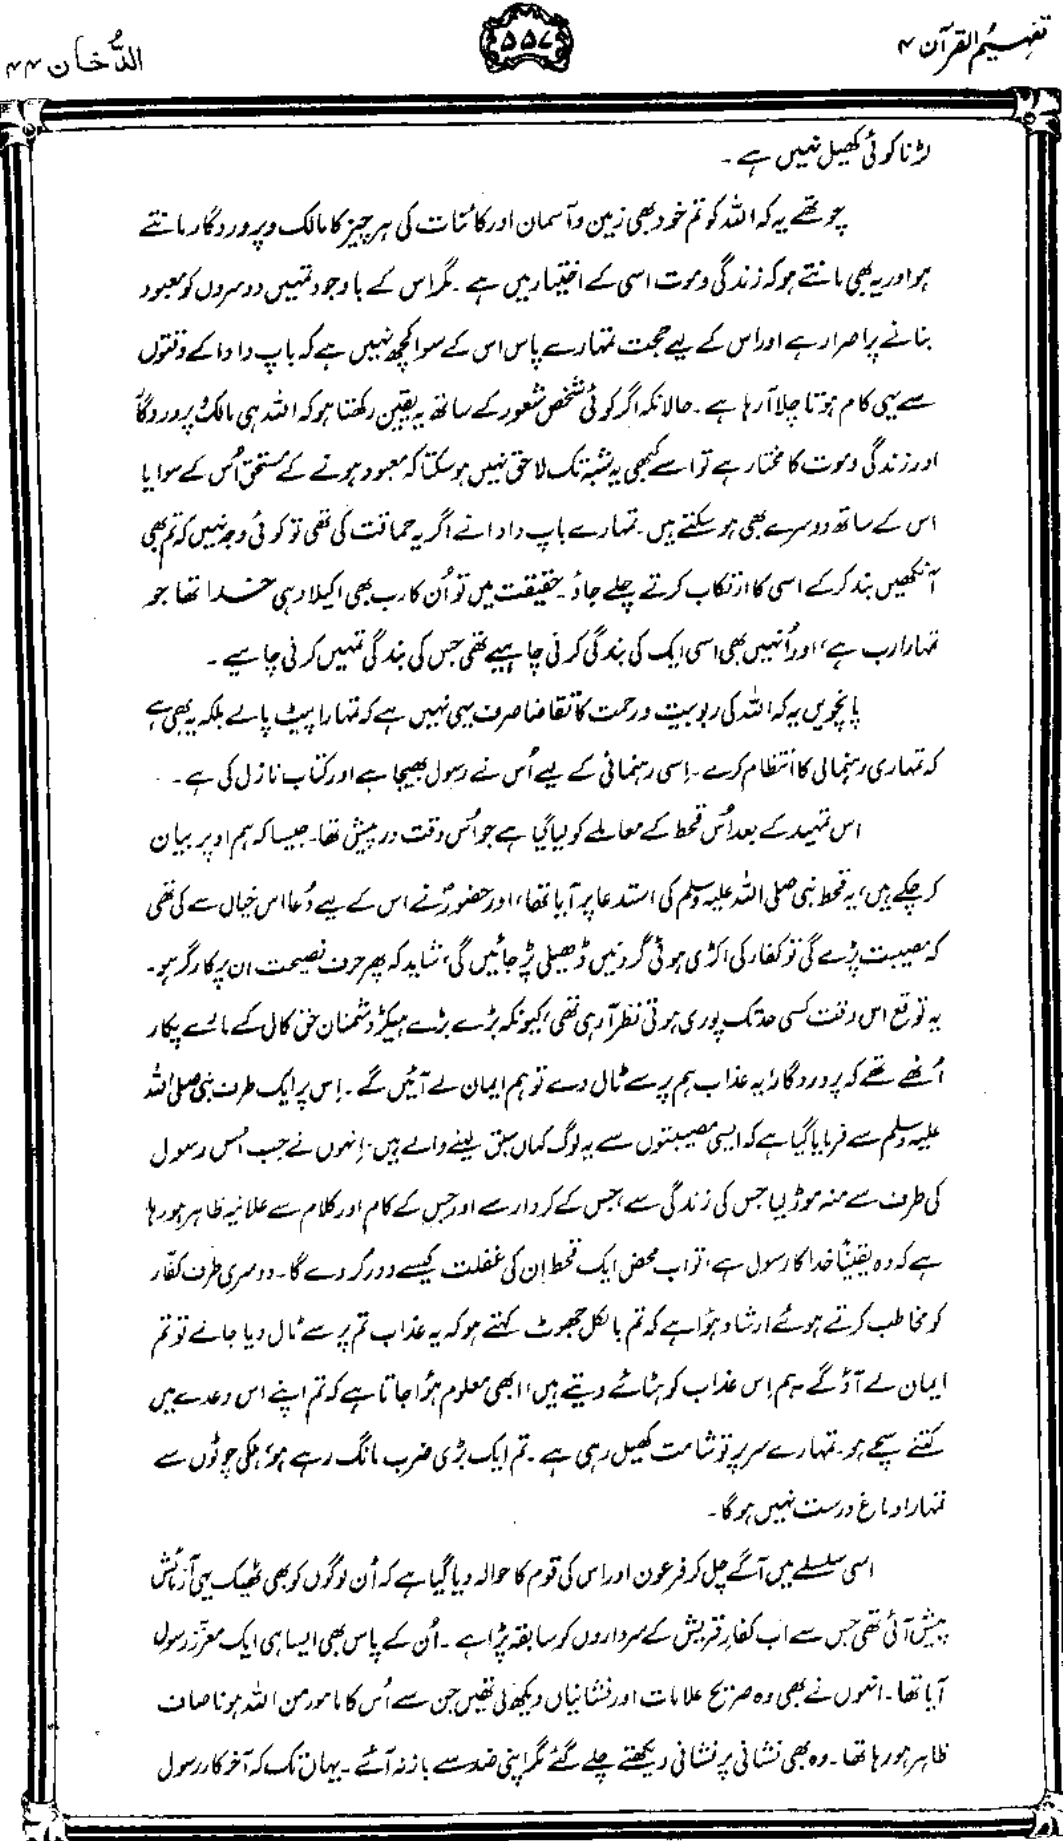 تفہیم القرآن ۴
۵۵۷
الدُّخان ۴۴
لڑنا کوئی کھیل نہیں ہے۔
چوتھے یہ کہ اللہ کو تم خود بھی زمین و آسمان اور کائنات کی ہر چیز کا مالک و پروردگار مانتے
ہو اور یہ بھی مانتے ہو کہ زندگی و موت اسی کے اختیار میں ہے۔ مگر اس کے باوجود تمہیں دوسروں کو معبود
بنانے پر اصرار ہے اور اس کے لیے حجت تمہارے پاس اس کے سوا کچھ نہیں ہے کہ باپ دادا کے وقتوں
سے یہی کام ہوتا چلا آ رہا ہے۔ حالانکہ اگر کوئی شخص شعور کے ساتھ یہ یقین رکھتا ہو کہ اللہ ہی مالک و پروردگار
اور زندگی و موت کا مختار ہے تو اسے کبھی یہ شبہ تک لاحق نہیں ہو سکتا کہ معبود ہونے کے مستحق اُس کے سوا یا
اس کے ساتھ دوسرے بھی ہو سکتے ہیں۔ تمہارے باپ دادا نے اگر یہ حماقت کی تھی تو کوئی وجہ نہیں کہ تم بھی
آنکھیں بند کر کے اسی کا ارتکاب کرتے چلے جاؤ۔ حقیقت میں تو اُن کا رب بھی اکیلا وہی خدا تھا جو
تمہارا رب ہے، اور اُنہیں بھی اسی ایک کی بندگی کرنی چاہیے تھی جس کی بندگی تمہیں کرنی چاہیے۔
پانچویں یہ کہ اللہ کی ربوبیت و رحمت کا تقاضا صرف یہی نہیں ہے کہ تمہارا پیٹ پالے بلکہ یہ بھی ہے
کہ تمہاری رہنمائی کا انتظام کرے۔ اِسی رہنمائی کے لیے اُس نے رسول بھیجا ہے اور کتاب نازل کی ہے۔
اس تمہید کے بعد اُس قحط کے معاملے کو لیا گیا ہے جو اُس وقت درپیش تھا۔ جیسا کہ ہم اوپر بیان
کر چکے ہیں، یہ قحط نبی صلی اللہ علیہ وسلم کی استدعا پر آیا تھا، اور حضورؐ نے اس کے لیے دُعا اس خیال سے کی تھی
کہ مصیبت پڑے گی تو کفار کی اکڑی ہوئی گردنیں ڈھیلی پڑ جائیں گی، شاید کہ پھر حرفِ نصیحت ان پر کارگر ہو۔
یہ توقع اس وقت کسی حد تک پوری ہوتی نظر آ رہی تھی، کیونکہ بڑے بڑے ہیکڑ دشمنانِ حق کال کے مارے پکار
اُٹھے تھے کہ پروردگار، یہ عذاب ہم پر سے ٹال دے تو ہم ایمان لے آئیں گے۔ اِس پر ایک طرف نبی صلی اللہ
علیہ وسلم سے فرمایا گیا ہے کہ ایسی مصیبتوں سے یہ لوگ کہاں سبق لینے والے ہیں۔ اِنہوں نے جب اُس رسول
کی طرف سے منہ موڑ لیا جس کی زندگی سے، جس کے کردار سے اور جس کے کام اور کلام سے علانیہ ظاہر ہو رہا
ہے کہ وہ یقیناً خدا کا رسول ہے، تو اب محض ایک قحط اِن کی غفلت کیسے دور کر دے گا۔ دوسری طرف کفّار
کو مخاطب کرتے ہوئے ارشاد ہوُا ہے کہ تم بالکل جھوٹ کہتے ہو کہ یہ عذاب تم پر سے ٹال دیا جائے تو تم
ایمان لے آؤ گے۔ ہم اِس عذاب کو ہٹائے دیتے ہیں، ابھی معلوم ہوُا جاتا ہے کہ تم اپنے اس وعدے میں
کتنے سچے ہو۔ تمہارے سر پر تو شامت کھیل رہی ہے۔ تم ایک بڑی ضرب مانگ رہے ہو، ہلکی چوٹوں سے
تمہارا دماغ درست نہیں ہو گا۔
اسی سلسلے میں آگے چل کر فرعون اور اس کی قوم کا حوالہ دیا گیا ہے کہ اُن لوگوں کو بھی ٹھیک یہی آزمائش
پیش آئی تھی جس سے اب کفارِ قریش کے سرداروں کو سابقہ پڑا ہے۔ اُن کے پاس بھی ایسا ہی ایک معزز رسول
آیا تھا۔ انہوں نے بھی وہ صریح علامات اور نشانیاں دیکھ لی تھیں جن سے اُس کا مامور من اللہ ہونا صاف
ظاہر ہو رہا تھا۔ وہ بھی نشانی پر نشانی دیکھتے چلے گئے مگر اپنی ضد سے باز نہ آئے۔ یہاں تک کہ آخر کار رسول